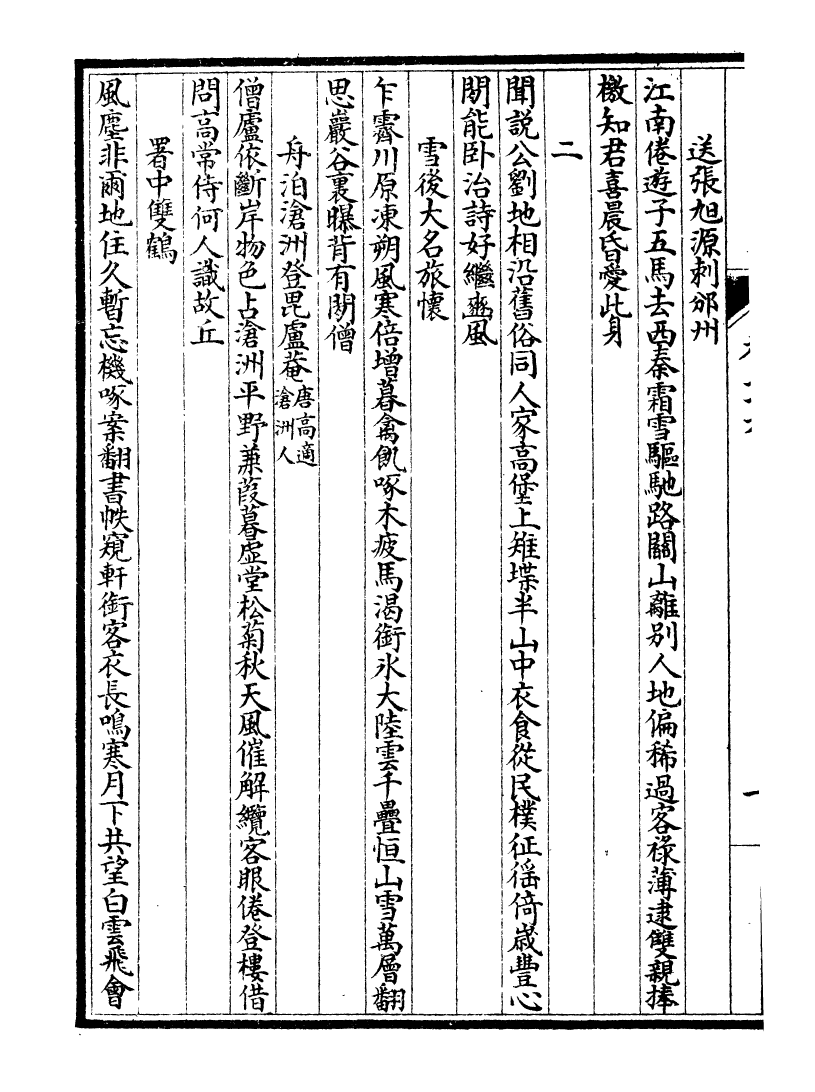 送張旭源刺邠州
江南倦遊子五馬去西秦霜雪驅馳路關山離別人地偏稀過客祿薄逮雙親捧
檄知君喜晨昏愛此身
二
聞説公劉地相沿舊俗同人家高堡上雉堞半山中衣食從民樸征徭倚歳豐心
閒能卧治詩好繼豳風
雪後大名旅懷
乍霽川原凍朔風寒倍增暮禽飢啄木疲馬渴銜氷大陸雲千疊恒山雪萬層翻
思巖谷裏曝背有閒僧
舟泊滄洲登毘盧菴唐高適滄洲人
僧廬依斷岸物色占滄洲平野蒹葭暮虚堂松菊秋天風催解纜客眼倦登樓借
問高常侍何人識故丘
署中雙鶴
風塵非爾地住久暫忘機啄案翻書帙窺軒銜客衣長鳴寒月下共望白雲飛會